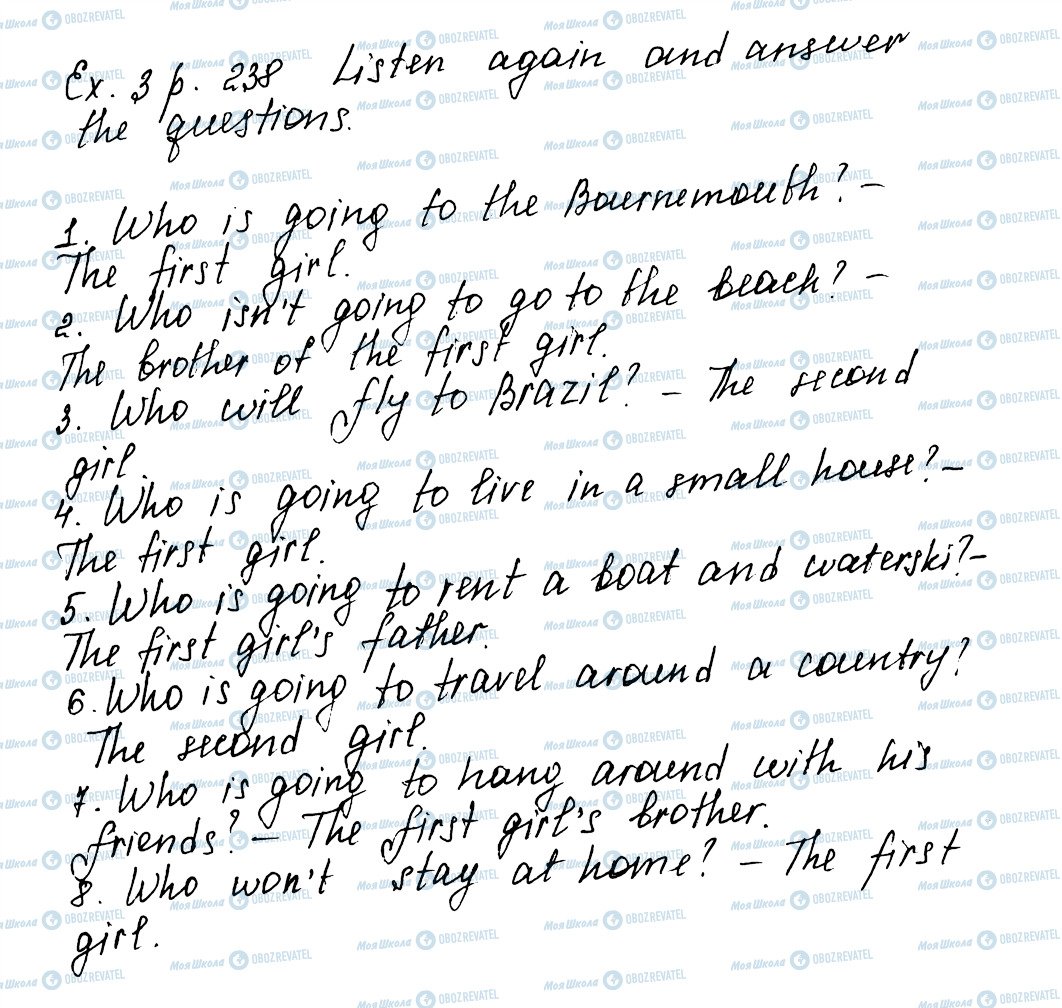 Ex. 3 p. 238 Listen again and answer
the questions.
1. Who is going to the Bournemouth? –
The first girl.
2. Who isn't going to go to the beach? –
The brother of the first girl.
3. Who will fly to Brazil? – The second
girl.
4. Who is going to live in a small house? –
The first girl.
5. Who is going to rent a boat and waterski? –
The first girl's father.
6. Who is going to travel around a country?
The second girl.
7. Who is going to hang around with his
friends? – The first girl's brother.
8. Who won't stay at home? – The first
girl.